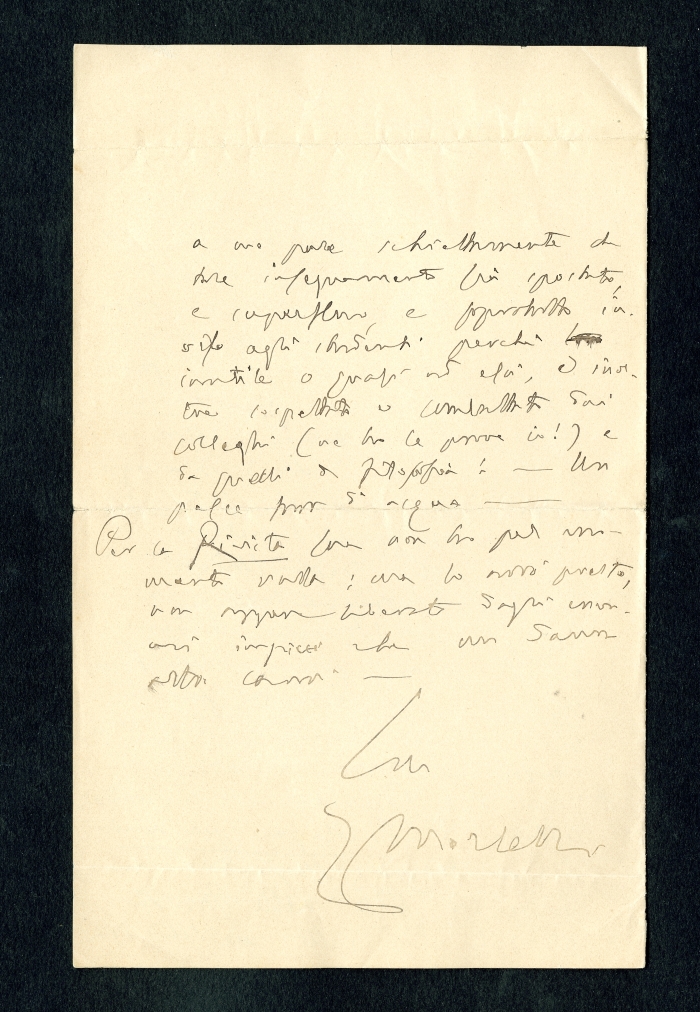 a me pare schiettamente di
dare insegnamento già spostato,
e superfluo, e soprattutto in-
viso agli studenti perchè
inutile o quasi ad essi, ed inol-
tre sospettato e combattuto dai
colleghi (ne ho le prove io!) e
da quelli di filosofia! — Un
pesce fuor di acqua —
Per la Rivista Sua non ho pel mo-
mento nulla; ma lo avrò presto,
non appena liberato dagli
impicci che mi danno
altri lavori —
Suo
EMorselli